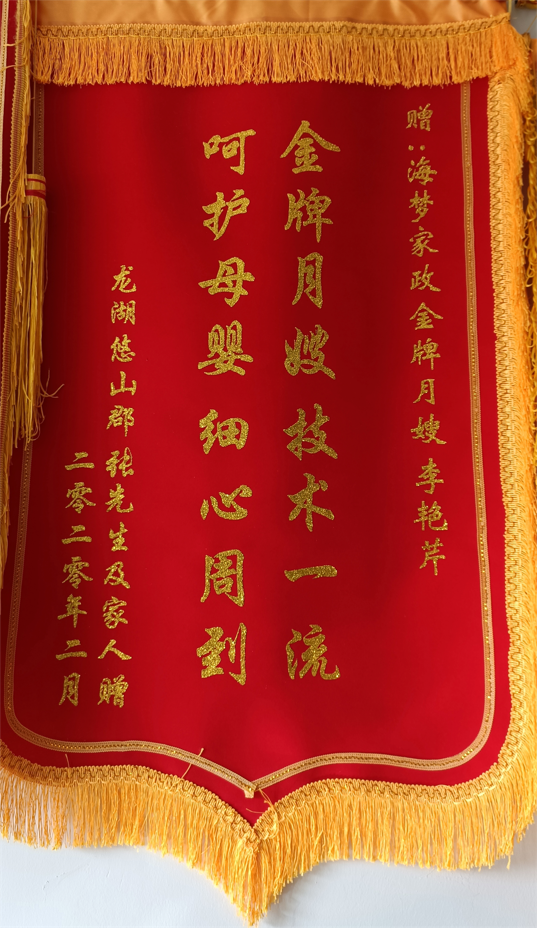 赠:海梦家政金牌月嫂李艳芹
金牌月嫂技术一流
呵护母婴细心周到
龙湖悠山郡张先生及家人赠
二零二零年二月